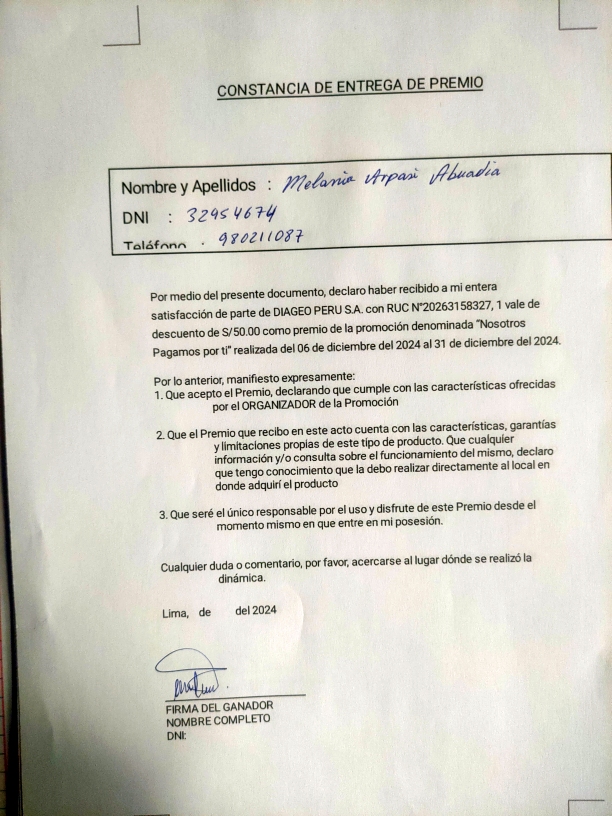 CONSTANCIA DE ENTREGA DE PREMIO
Nombre y Apellidos : Melania Arpasi Abuadia
DNI : 32954674
Teláfono : 980211087
Por medio del presente documento, declaro haber recibido a mi entera
satisfacción de parte de DIAGEO PERU S.A. con RUC N°20263158327, 1 vale de
descuento de S/50.00 como premio de la promoción denominada "Nosotros
Pagamos por ti" realizada del 06 de diciembre del 2024 al 31 de diciembre del 2024.
Por lo anterior, manifiesto expresamente:
1. Que acepto el Premio, declarando que cumple con las características ofrecidas
por el ORGANIZADOR de la Promoción
2. Que el Premio que recibo en este acto cuenta con las características, garantías
y limitaciones propias de este tipo de producto. Que cualquier
información y/o consulta sobre el funcionamiento del mismo, declaro
que tengo conocimiento que la debo realizar directamente al local en
donde adquirí el producto
3. Que seré el único responsable por el uso y disfrute de este Premio desde el
momento mismo en que entre en mi posesión.
Cualquier duda o comentario, por favor, acercarse al lugar dónde se realizó la
dinámica.
Lima, de del 2024
FIRMA DEL GANADOR
NOMBRE COMPLETO
DNI: